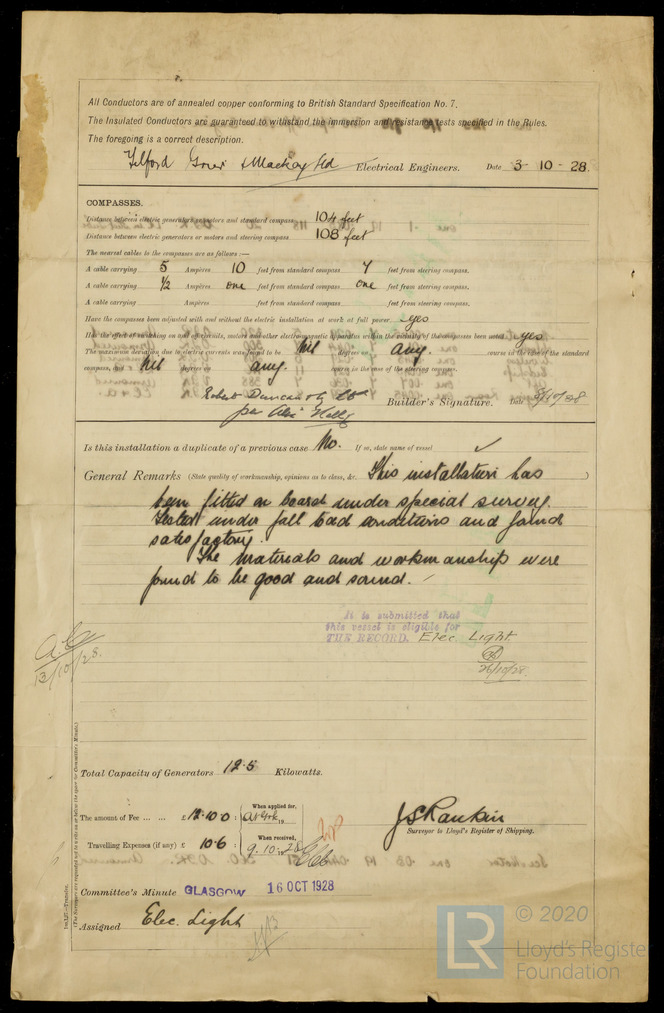 All Conductors are of annealed copper conforming to British Standard Specification No. 7.
The Insulated Conductors are guaranteed to withstand the immersion and resistance tests specified in the Rules.
The foregoing is a correct description.
Telford Grier & Mackay Ltd Electrical Engineers. Date 3-10-28.
COMPASSES.
Distance between electric generators or motors and standard compass 104 feet
Distance between electric generators or motors and steering compass 108 feet
The nearest cables to the compasses are as follows:—
A cable carrying 5 Ampères 10 feet from standard compass 7 feet from steering compass.
A cable carrying ½ Ampères one feet from standard compass one feet from steering compass.
A cable carrying Ampères feet from standard compass feet from steering compass.
Have the compasses been adjusted with and without the electric installation at work at full power yes
Has the effect of switching on and off circuits, motors and other electromagnetic apparatus within the vicinity of the compasses been noted yes
The maximum deviation due to electric currents was found to be Nil degrees on any. course in the case of the standard
compass, and Nil degrees on any. course in the case of the steering compass.
Robert Duncan & Co
per Alex Builder's Signature. Date 8/10/28
Is this installation a duplicate of a previous case No. If so, state name of vessel
General Remarks (State quality of workmanship, opinions as to class, &c. This installation has
been fitted on board under special survey.
Tested under full load conditions and found
satisfactory.
The materials and workmanship were
found to be good and sound.
It is submitted that
this vessel is eligible for
THE RECORD. Elec. Light
26/10/28
13/10/28.
Total Capacity of Generators 12.5 Kilowatts.
The amount of Fee ... ... £ 12.10.0 : When applied for,
Travelling Expenses (if any) £ 10.6 : When received,
9.10.28
J S Rankin
Surveyor to Lloyd's Register of Shipping.
Committee's Minute GLASGOW 16 OCT 1928
Assigned Elec. Light
LR © 2020
Lloyd's Registe
Foundation